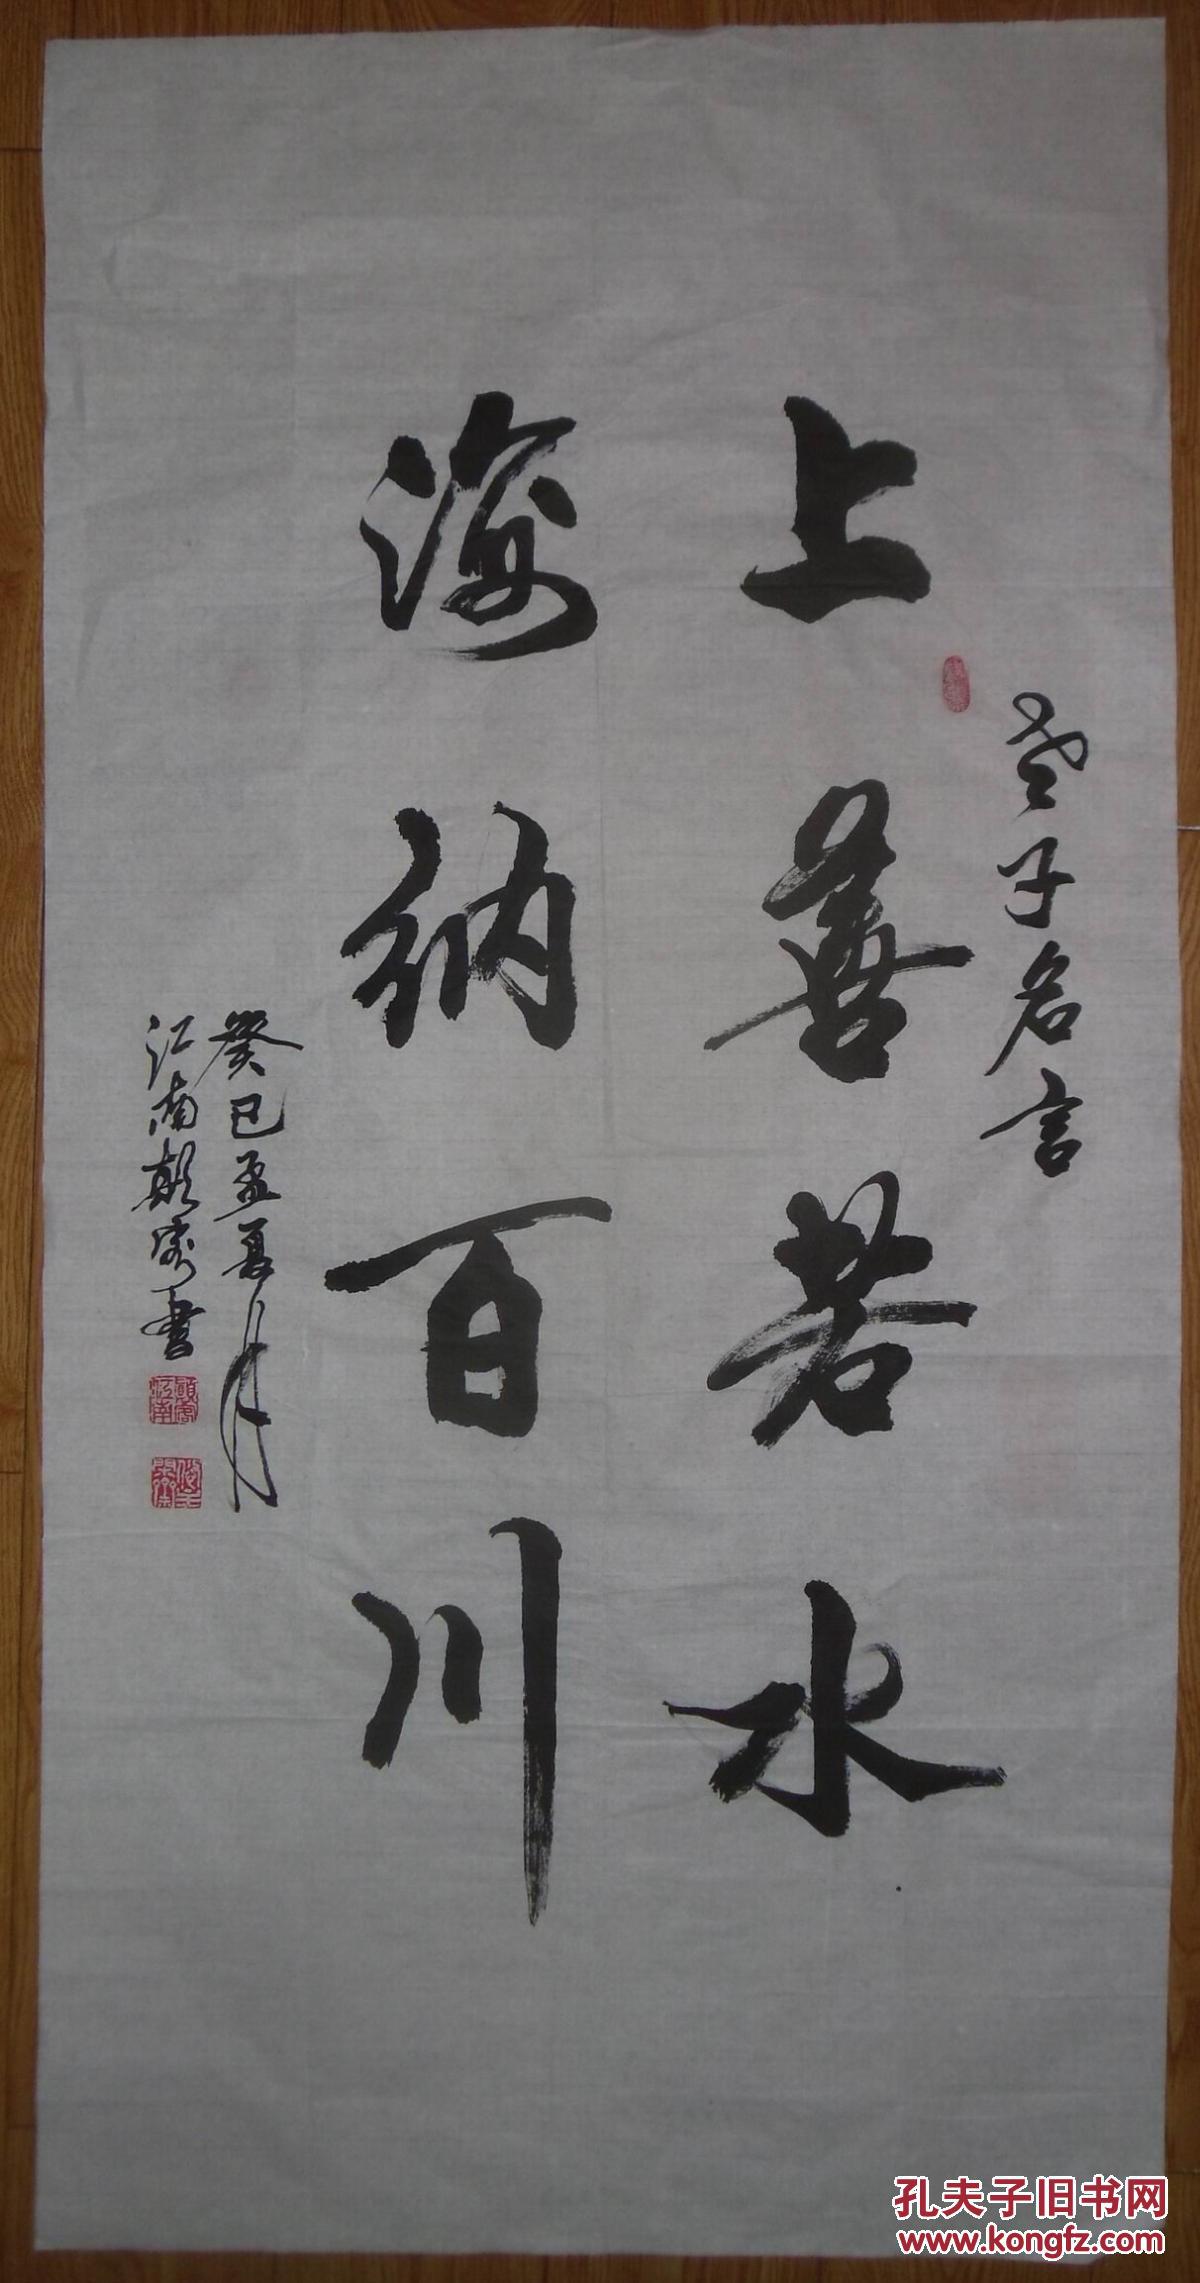 老子名言
上善若水
海纳百川
癸巳孟夏月
江南顾寄书
孔夫子旧书网
www.kongfz.com